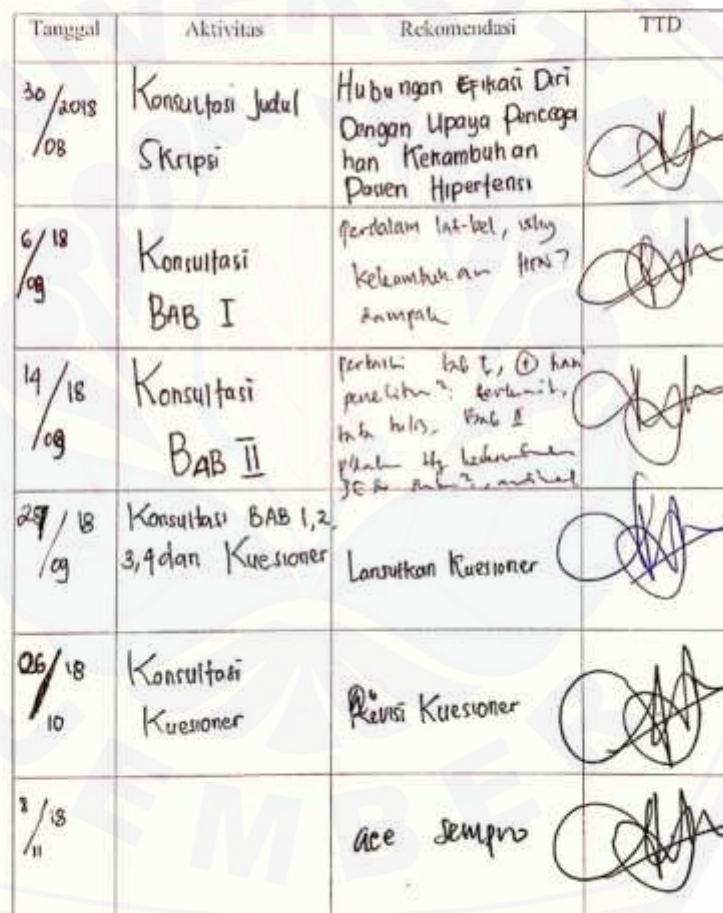 Tanggal Aktivitas Rekomendasi TTD
30/08 2018
Konsultasi Judul
Skripsi
Hubungan Efikasi Diri
Dengan Upaya Pencega
han Kekambuhan
Pasien Hipertensi
6/09 18
Konsultasi
BAB I
perdalam lat-bel, why
kekambuhan HTN?
dampak
14/09 18
Konsultasi
BAB II
perbaiki bab I, + kan
tata tulis, Bab II
18
/09
Konsultasi BAB 1,2,
3,4 dan Kuesioner
Lanjutkan Kuesioner
26/10 18
Konsultasi
Kuesioner
Revisi Kuesioner
8/11 18
acc sempro
JEMBER